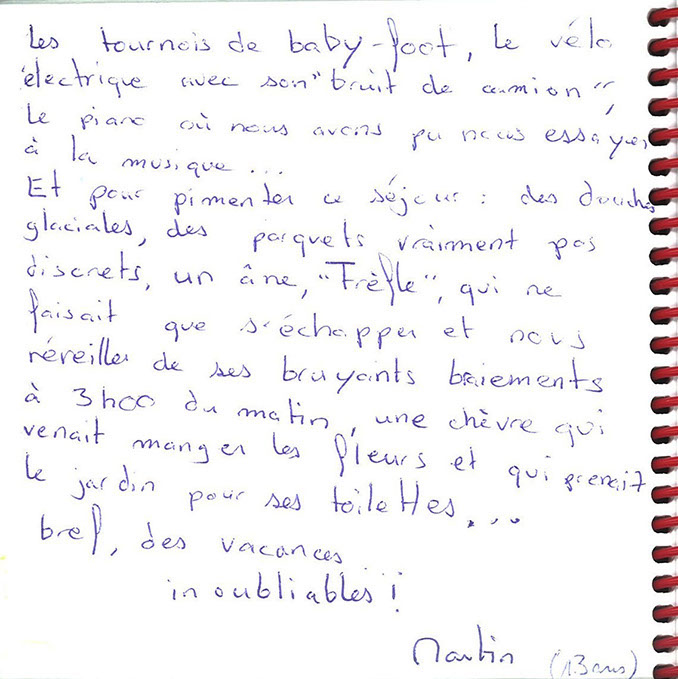 Les tournois de baby-foot, le vélo
électrique avec son "bruit de camion",
le piano où nous avons pu nous essayer
à la musique...
Et pour pimenter ce séjour : des douches
glaciales, des parquets vraiment pas
discrets, un âne, "Trèfle", qui ne
faisait que s'échapper et nous
réveiller de ses bruyants braiements
à 3h00 du matin, une chèvre qui
venait manger les fleurs et qui prenait
le jardin pour ses toilettes....
bref, des vacances
inoubliables !
Martin (13 ans)